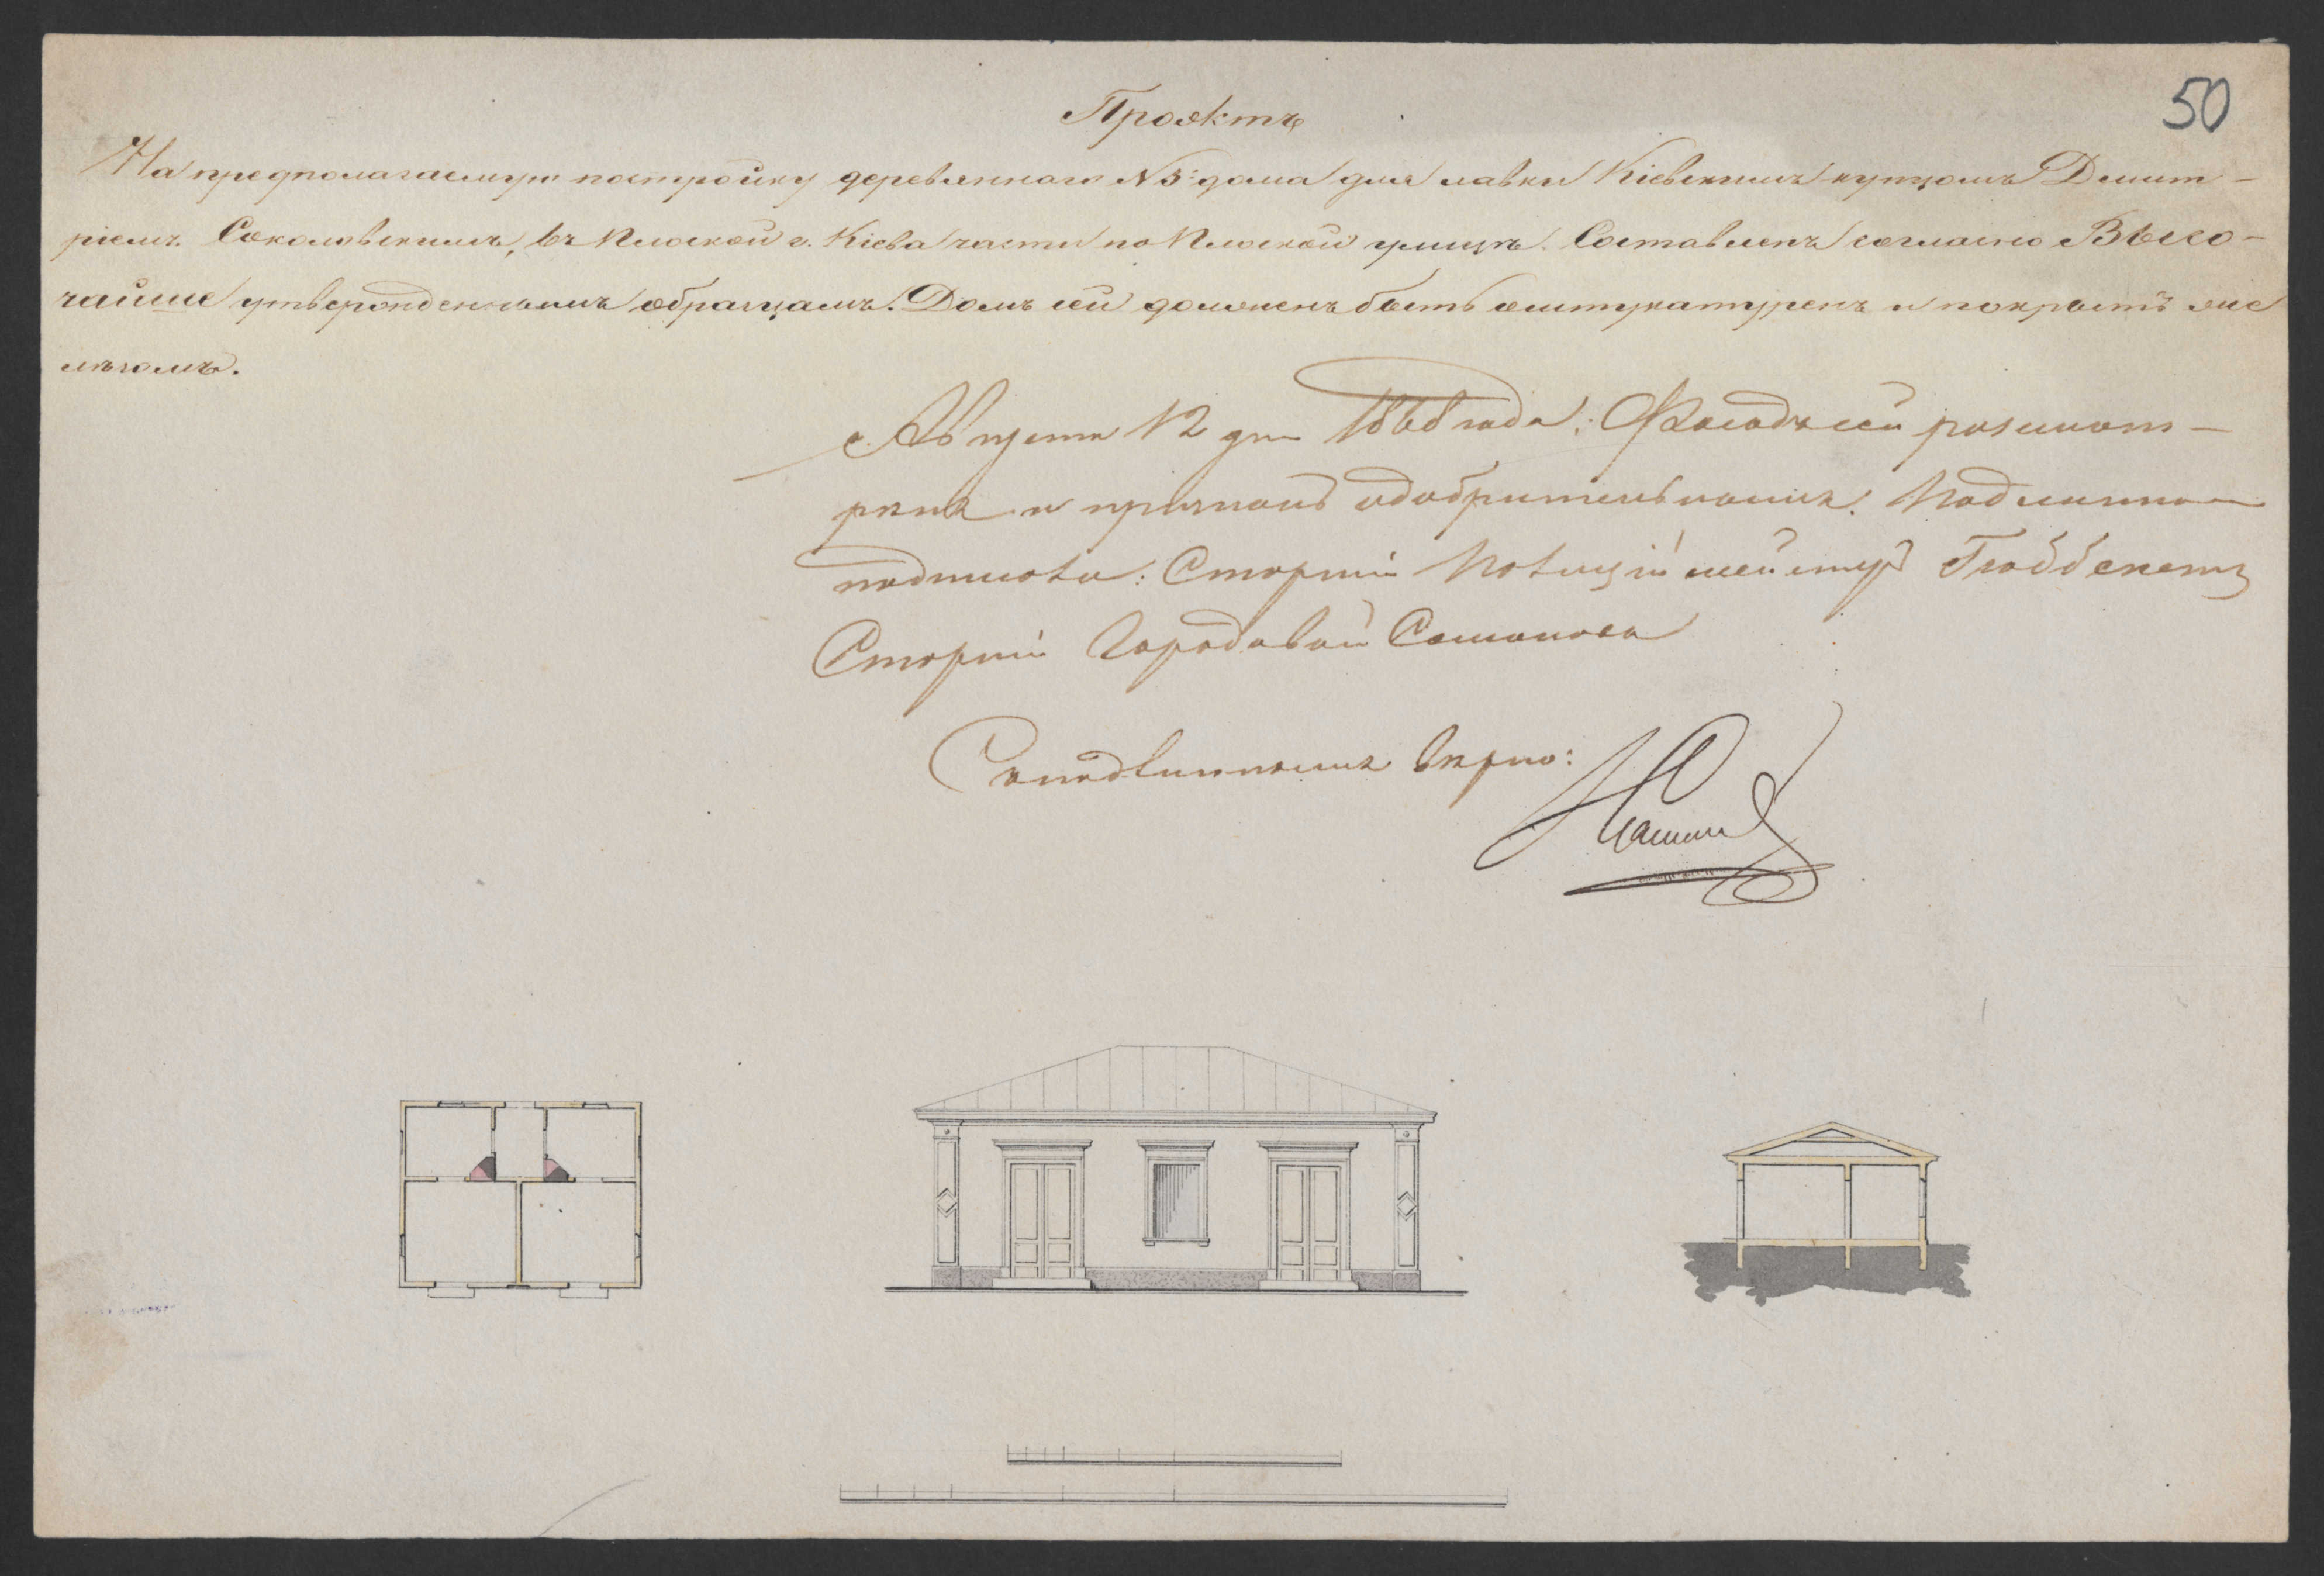 50
Проэктъ
На предполагаемую постройку деревяннаго № 3: дома для лавки Кіевскимъ купцомъ Димит-
ріемъ Соколовскимъ, въ Плоской г. Кіева части по Плоской улицѣ. Составленъ согласно Высо-
чайше утвержденнымъ образцамъ. Домъ сей долженъ быть оштукатуренъ и покрытъ же
лѣзомъ.
Августа 12 дня года. Фасадъ сей розсмот-
рѣнъ и признанъ одобрительнымъ. Подлинно
подписали: Старшій Полиціймейстеръ
Старшій Городовой
Съ подлиннымъ вѣрно: